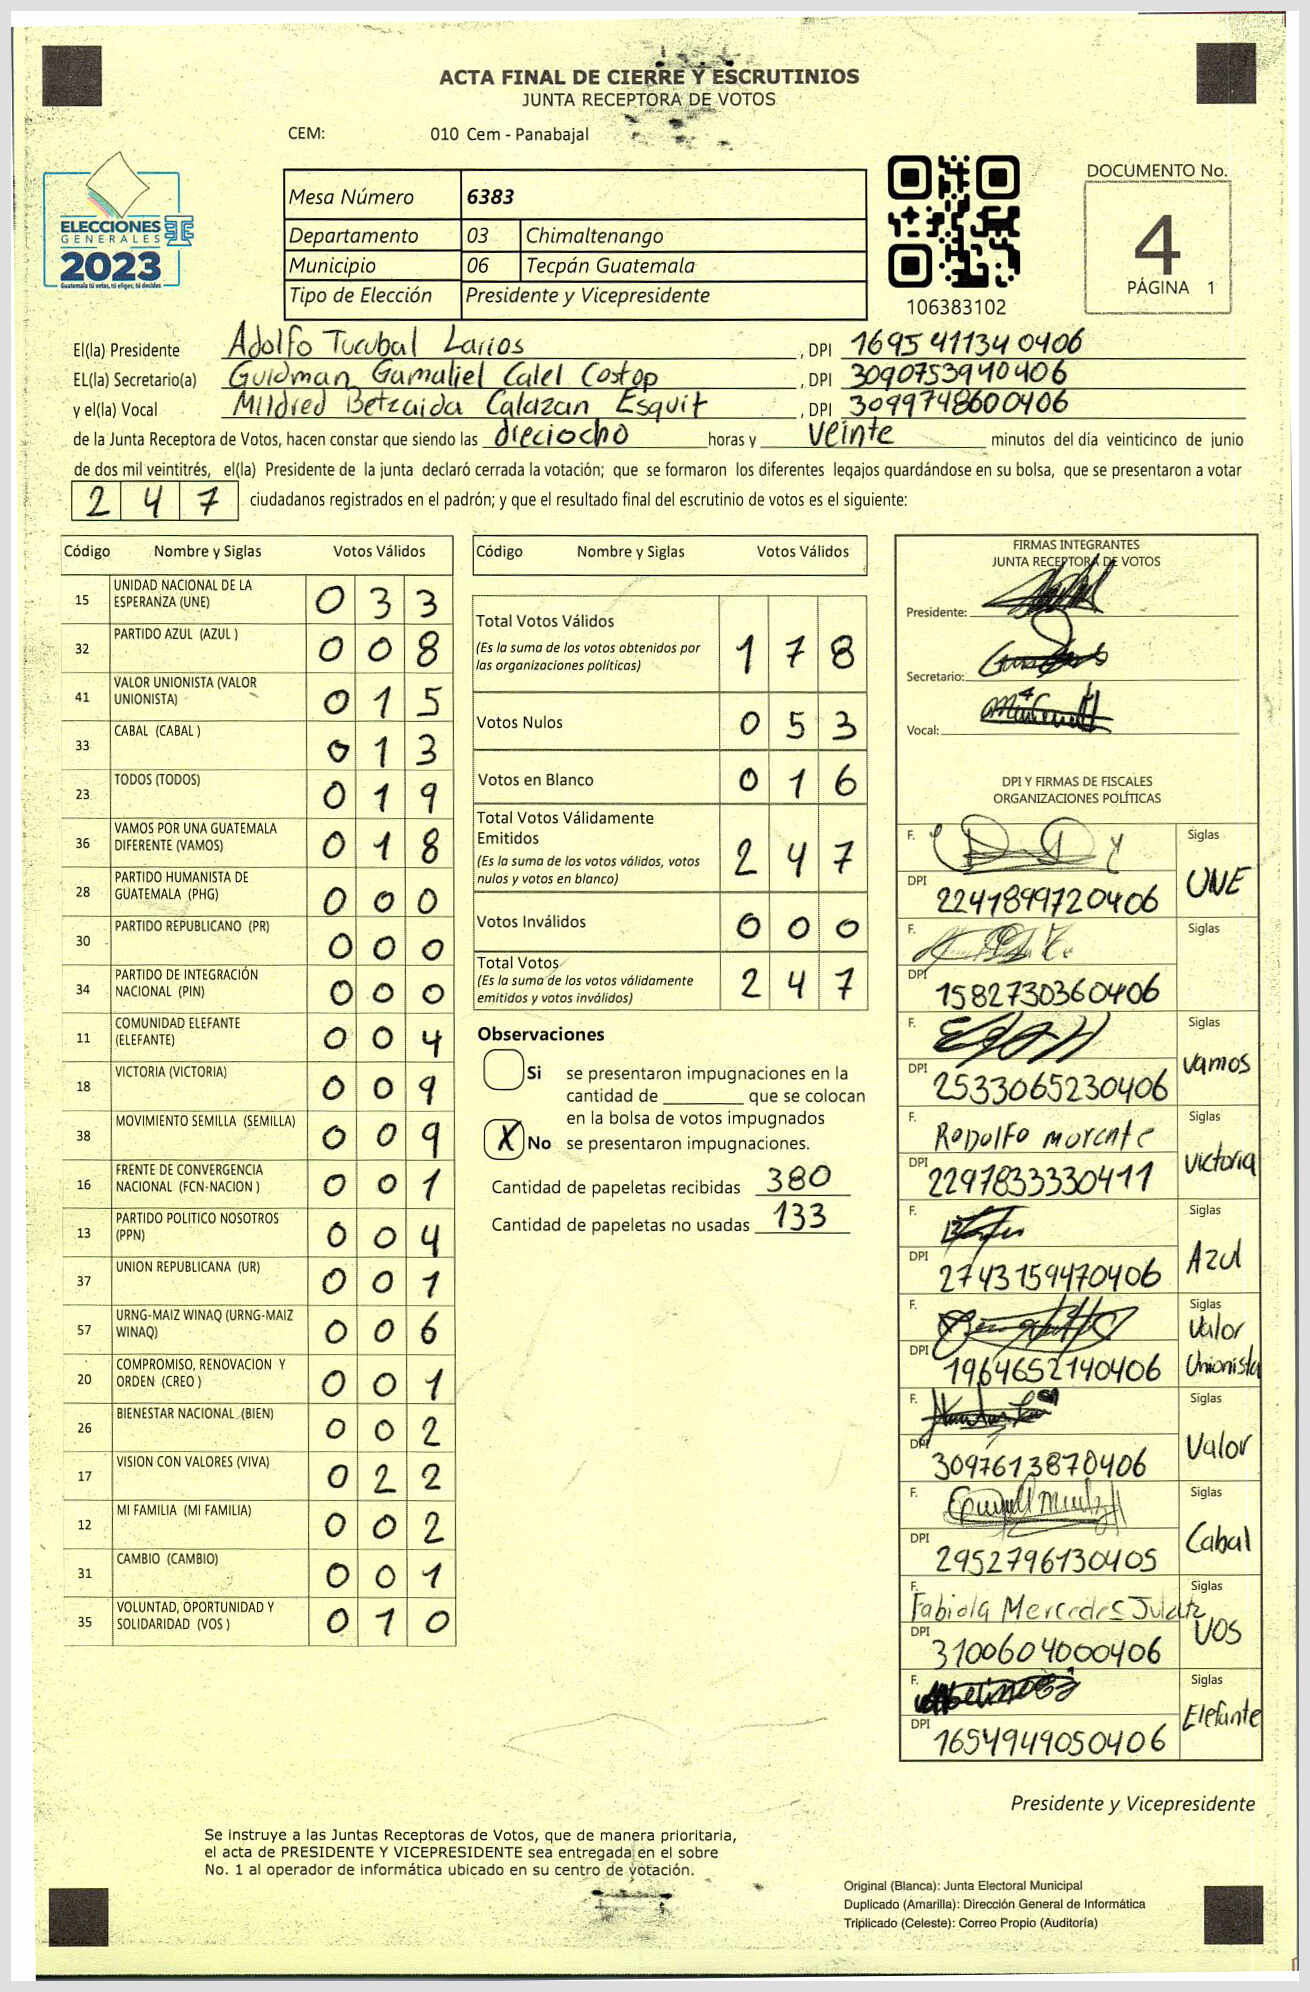 ACTA FINAL DE CIERRE Y ESCRUTINIOS
JUNTA RECEPTORA DE VOTOS
CEM: 010 Cem - Panabajal
ELECCIONES
GENERALES
2023
Guatemala tú votas, tú eliges, tú decides
Mesa Número 6383
Departamento 03 Chimaltenango
Municipio 06 Tecpán Guatemala
Tipo de Elección Presidente y Vicepresidente
106383102
DOCUMENTO No.
4
PÁGINA 1
El(la) Presidente Adolfo Tucubal Larios, DPI 1695 41134 0406
EL(la) Secretario(a) Guidman Gamaliel Calel Costop, DPI 3090753940406
y el(la) Vocal Mildred Betzaida Calazan Esquit, DPI 3099748600406
de la Junta Receptora de Votos, hacen constar que siendo las dieciocho horas y veinte minutos del día veinticinco de junio
de dos mil veintitrés, el(la) Presidente de la junta declaró cerrada la votación; que se formaron los diferentes legajos guardándose en su bolsa, que se presentaron a votar
247 ciudadanos registrados en el padrón; y que el resultado final del escrutinio de votos es el siguiente:
Código Nombre y Siglas Votos Válidos
15 UNIDAD NACIONAL DE LA ESPERANZA (UNE) 033
32 PARTIDO AZUL (AZUL ) 008
41 VALOR UNIONISTA (VALOR UNIONISTA) 015
33 CABAL (CABAL ) 013
23 TODOS (TODOS) 019
36 VAMOS POR UNA GUATEMALA DIFERENTE (VAMOS) 018
28 PARTIDO HUMANISTA DE GUATEMALA (PHG) 000
30 PARTIDO REPUBLICANO (PR) 000
34 PARTIDO DE INTEGRACIÓN NACIONAL (PIN) 000
11 COMUNIDAD ELEFANTE (ELEFANTE) 004
18 VICTORIA (VICTORIA) 009
38 MOVIMIENTO SEMILLA (SEMILLA) 009
16 FRENTE DE CONVERGENCIA NACIONAL (FCN-NACION ) 001
13 PARTIDO POLITICO NOSOTROS (PPN) 004
37 UNION REPUBLICANA (UR) 001
57 URNG-MAIZ WINAQ (URNG-MAIZ WINAQ) 006
20 COMPROMISO, RENOVACION Y ORDEN (CREO ) 001
26 BIENESTAR NACIONAL (BIEN) 002
17 VISION CON VALORES (VIVA) 022
12 MI FAMILIA (MI FAMILIA) 002
31 CAMBIO (CAMBIO) 001
35 VOLUNTAD, OPORTUNIDAD Y SOLIDARIDAD (VOS ) 010
Código Nombre y Siglas Votos Válidos
Total Votos Válidos 178
(Es la suma de los votos obtenidos por
las organizaciones políticas)
Votos Nulos 053
Votos en Blanco 016
Total Votos Válidamente
Emitidos 247
(Es la suma de los votos válidos, votos
nulos y votos en blanco)
Votos Inválidos 000
Total Votos 247
(Es la suma de los votos válidamente
emitidos y votos inválidos)
Observaciones
Si se presentaron impugnaciones en la
cantidad de ________ que se colocan
en la bolsa de votos impugnados
X No se presentaron impugnaciones.
Cantidad de papeletas recibidas 380
Cantidad de papeletas no usadas 133
FIRMAS INTEGRANTES
JUNTA RECEPTORA DE VOTOS
Presidente:
Secretario:
Vocal:
DPI Y FIRMAS DE FISCALES
ORGANIZACIONES POLÍTICAS
F. Siglas UNE
DPI 2241899720406
F. Siglas
DPI 1582730360406
F. Siglas Vamos
DPI 2533065230406
F. Rodolfo morente Siglas Victoria
DPI 2297833330411
F. Siglas Azul
DPI 2743159470406
F. Siglas Valor Unionista
DPI 1964652140406
F. Siglas Valor
DPI 3097613870406
F. Siglas Cabal
DPI 2952796130405
F. Fabiola Mercedes Siglas VOS
DPI 3100604000406
F. Siglas Elefante
DPI 1654949050406
Presidente y Vicepresidente
Se instruye a las Juntas Receptoras de Votos, que de manera prioritaria,
el acta de PRESIDENTE Y VICEPRESIDENTE sea entregada en el sobre
No. 1 al operador de informática ubicado en su centro de votación.
Original (Blanca): Junta Electoral Municipal
Duplicado (Amarilla): Dirección General de Informática
Triplicado (Celeste): Correo Propio (Auditoría)